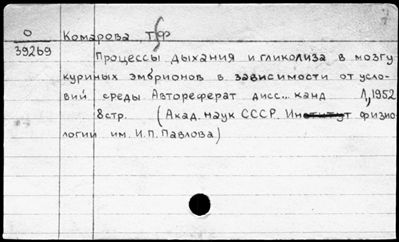 О
39269
Комарова Т.Ф
Процессы дыхания и гликолиза в мозгу
куриных эмбрионов в зависимости от усло-
вий среды. Автореферат дисс... канд Л, 1952
8стр. (Акад. наук СССР. Институт физио
логии им. И.П. Павлова)